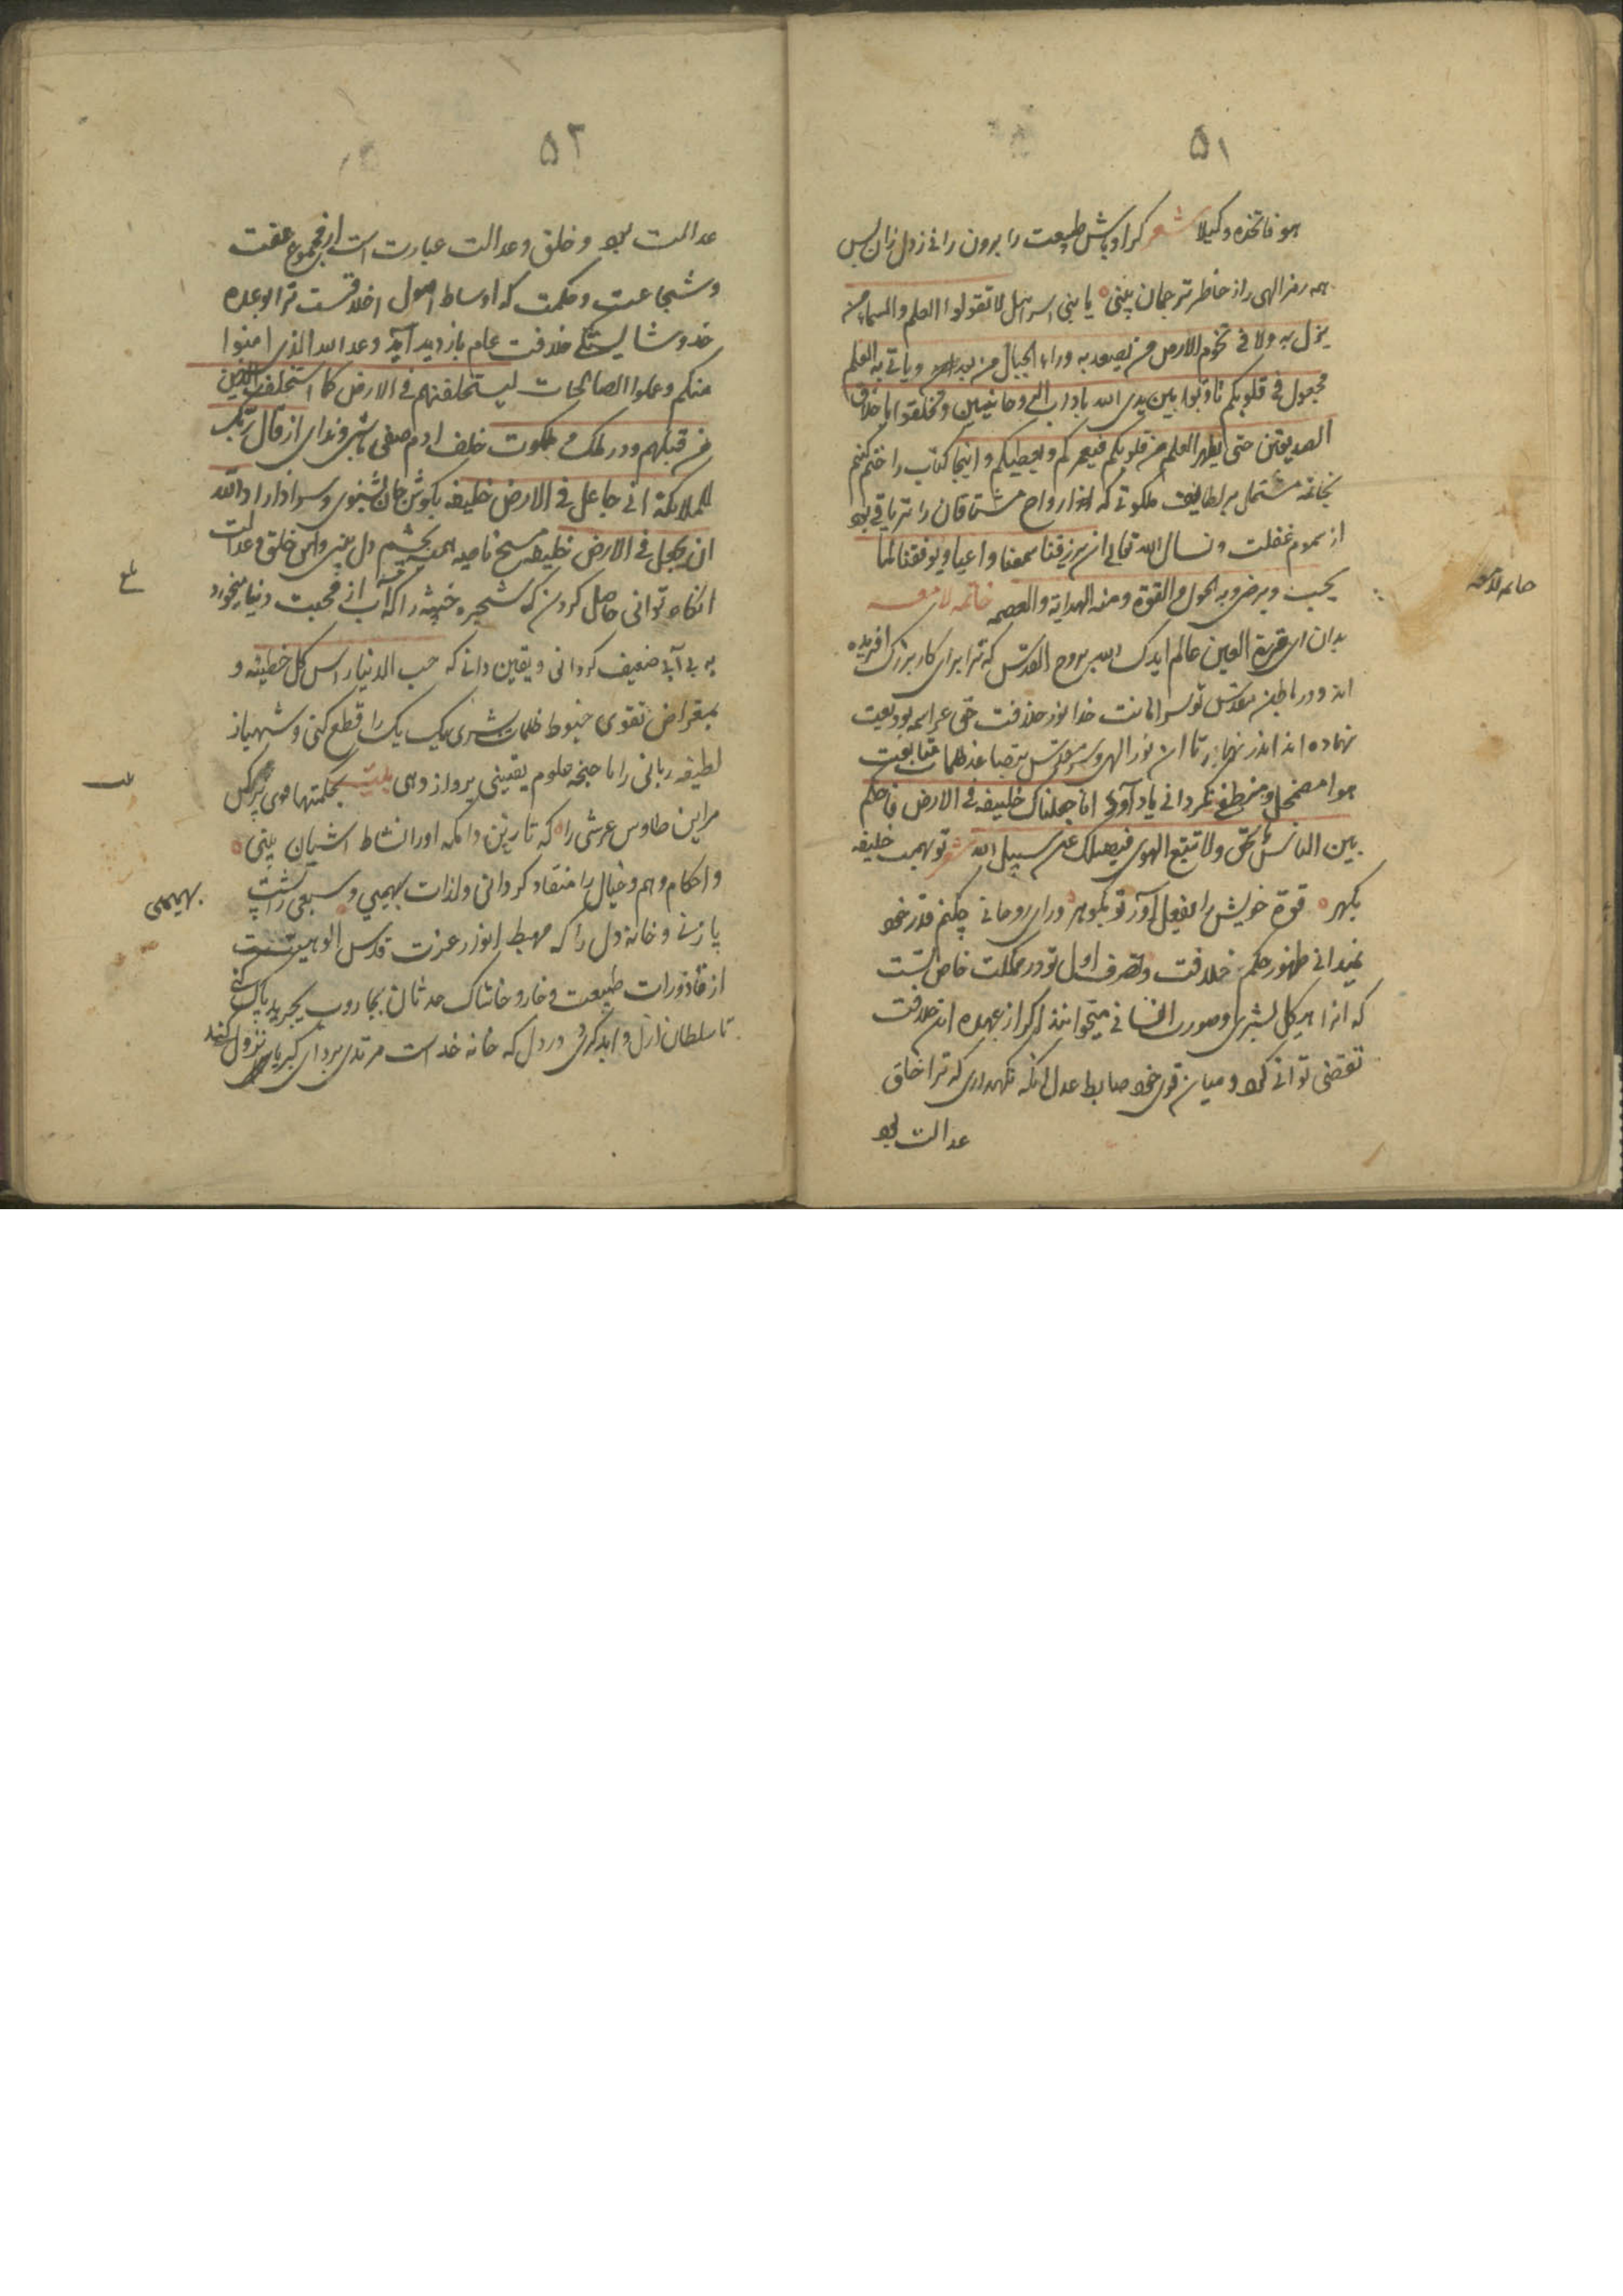 ۵۱
هو فاتخذه وکیلا شعر کر اوباش طبیعت را برون رانی ز دل زان پس
همه رمز الهی را ز خاطر ترجمان بینی یا بنی اسرائیل لا تقولوا العلم فی السماء من
ینزل به ولا فی تخوم الارض من یصعد به وراء الجبال من یعبر و یاتی به العلم
مجعول فی قلوبکم تادبوا بین یدی الله باداب الروحانیین و تخلقوا باخلاق
الصدیقین حتی یظهر العلم من قلوبکم فیغمرکم و یعطیکم و اینجا کتاب را ختم کنیم
بخاتمه مشتمل بر لطایف ملکوتی که ارواح مشتاقان را تریاقی بود
از سموم غفلت و نسال الله تعالی ان یرزقنا سمعنا واعیا و یوفقنا لما
یحب و یرضی و به الحول و القوة و منه الهدایة و العصمه خاتمه لامعه
بدان ای قرة العین عالم ایدک الله بروح القدس که ترا برای کار بزرک افریده
اند و در باطن مقدس تو سر امانت خدا نور خلافت حق عز اسمه بودیعت
نهاده اند اندر نهار تا ان نور الهی و سر مقدس بتصاعد ظلمات متابعت
هوا مضمحل و منطفی نکردانی یاد آور انا جعلناک خلیفه فی الارض فاحکم
بین الناس بالحق ولا تتبع الهوی فیضلک عن سبیل الله شعر تو بهمت خلیفه
بکهر قوة خویش را بفعل آور تو بکوهر ورای دو جهانی چکنم قدر خود
نمیدانی ظهور حکم خلافت و تصرف اول تو در مملکت خاص تست
که انرا هیکل بشری و صورت انسانی میخوانند اکر از عهده این خلافت
تقضی توانی کرد و میان قوی خود ضابط عدل نکه نکهداری که ترا خلق
عدالت بود
خاتمه لامعه
۵۲
عدالت بود و خلق و عدالت عبارت است از مجموع عفت
و شجاعت و حکمت که اوساط اصول اخلاقست ترا بوعده
خدو شایستکی خلافت عام بازدید آید وعد الله الذین امنوا
منکم و عملوا الصالحات لیستخلفنهم فی الارض کما استخلف الذین
من قبلهم و در ملک و ملکوت خلف ادم صفی باشی و ندای از قال ربک
للملائکة انی جاعل فی الارض خلیفه بکوش جان بشنوی و سر اذا اراد الله
ان یجعل فی الارض خلیفه مسح ناصیه بچشم دل بینی و این خلق و عدالت
انکاه توانی حاصل کردن که شجره خبیثه را که آب از محبت دنیا میخورد
به بی آبی ضعیف کردانی و یقین دانی که حب الدنیا راس کل خطیئه و
بمقراض تقوی خیوط ظلمات بشری یک یک را قطع کنی و شهباز
لطیفه ربانی را با جنحه علوم یقینی پرواز دهی بیت بحکمتها قوی پر کن
مر این طاوس عرشی را که تا زین دامکه او را نشاط اشیان بینی
و احکام وهم و خیال را منقاد کردانی و لذات بهیمی و سبعی را پشت
پا زنی و خانه دل را که مهبط انوار عزت قدس الوهیتست
از قاذورات طبیعت و خار و خاشاک حدثان بجاروب تجرید پاک کنی
تا سلطان ازل و ابد در دل که خانه خداست مرتدی بردای کبریا نزول کند
بهیمی